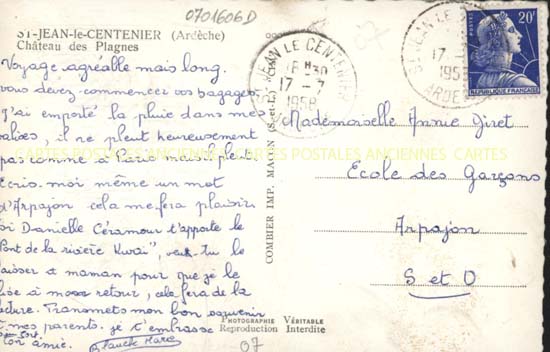 0701606D
St-JEAN-le-CENTENIER (Ardèche)
Château des Plagnes
Voyage agréable mais long.
vous devez commencer vos bagages.
J'ai emporté la pluie dans mes
valises, il ne pleut heureusement
pas comme à Paris mais il pleut.
Ecris-moi même un mot
d'Arpajon cela me fera plaisir.
Si Danielle Céramour t'apporte le
"Pont de la rivière Kwaï", veux-tu le
laisser à maman pour que je le
lise à mon retour, cela fera de la
lecture. Transmets mon bon souvenir
à mes parents. je t'embrasse
Ton amie.
Claude Marie
COMBIER IMP. MACON (S.-et-L.)
ST JEAN LE CENTENIER
17 - 7
1958
20F
POSTES
REPUBLIQUE FRANÇAISE
17
195
ARDE
Mademoiselle Annie Giret
Ecole des Garçons
Arpajon
S et O
CARTES POSTALES ANCIENNES CARTES POSTALES ANCIENNES CARTES
PHOTOGRAPHIE VÉRITABLE
Reproduction Interdite
07
07